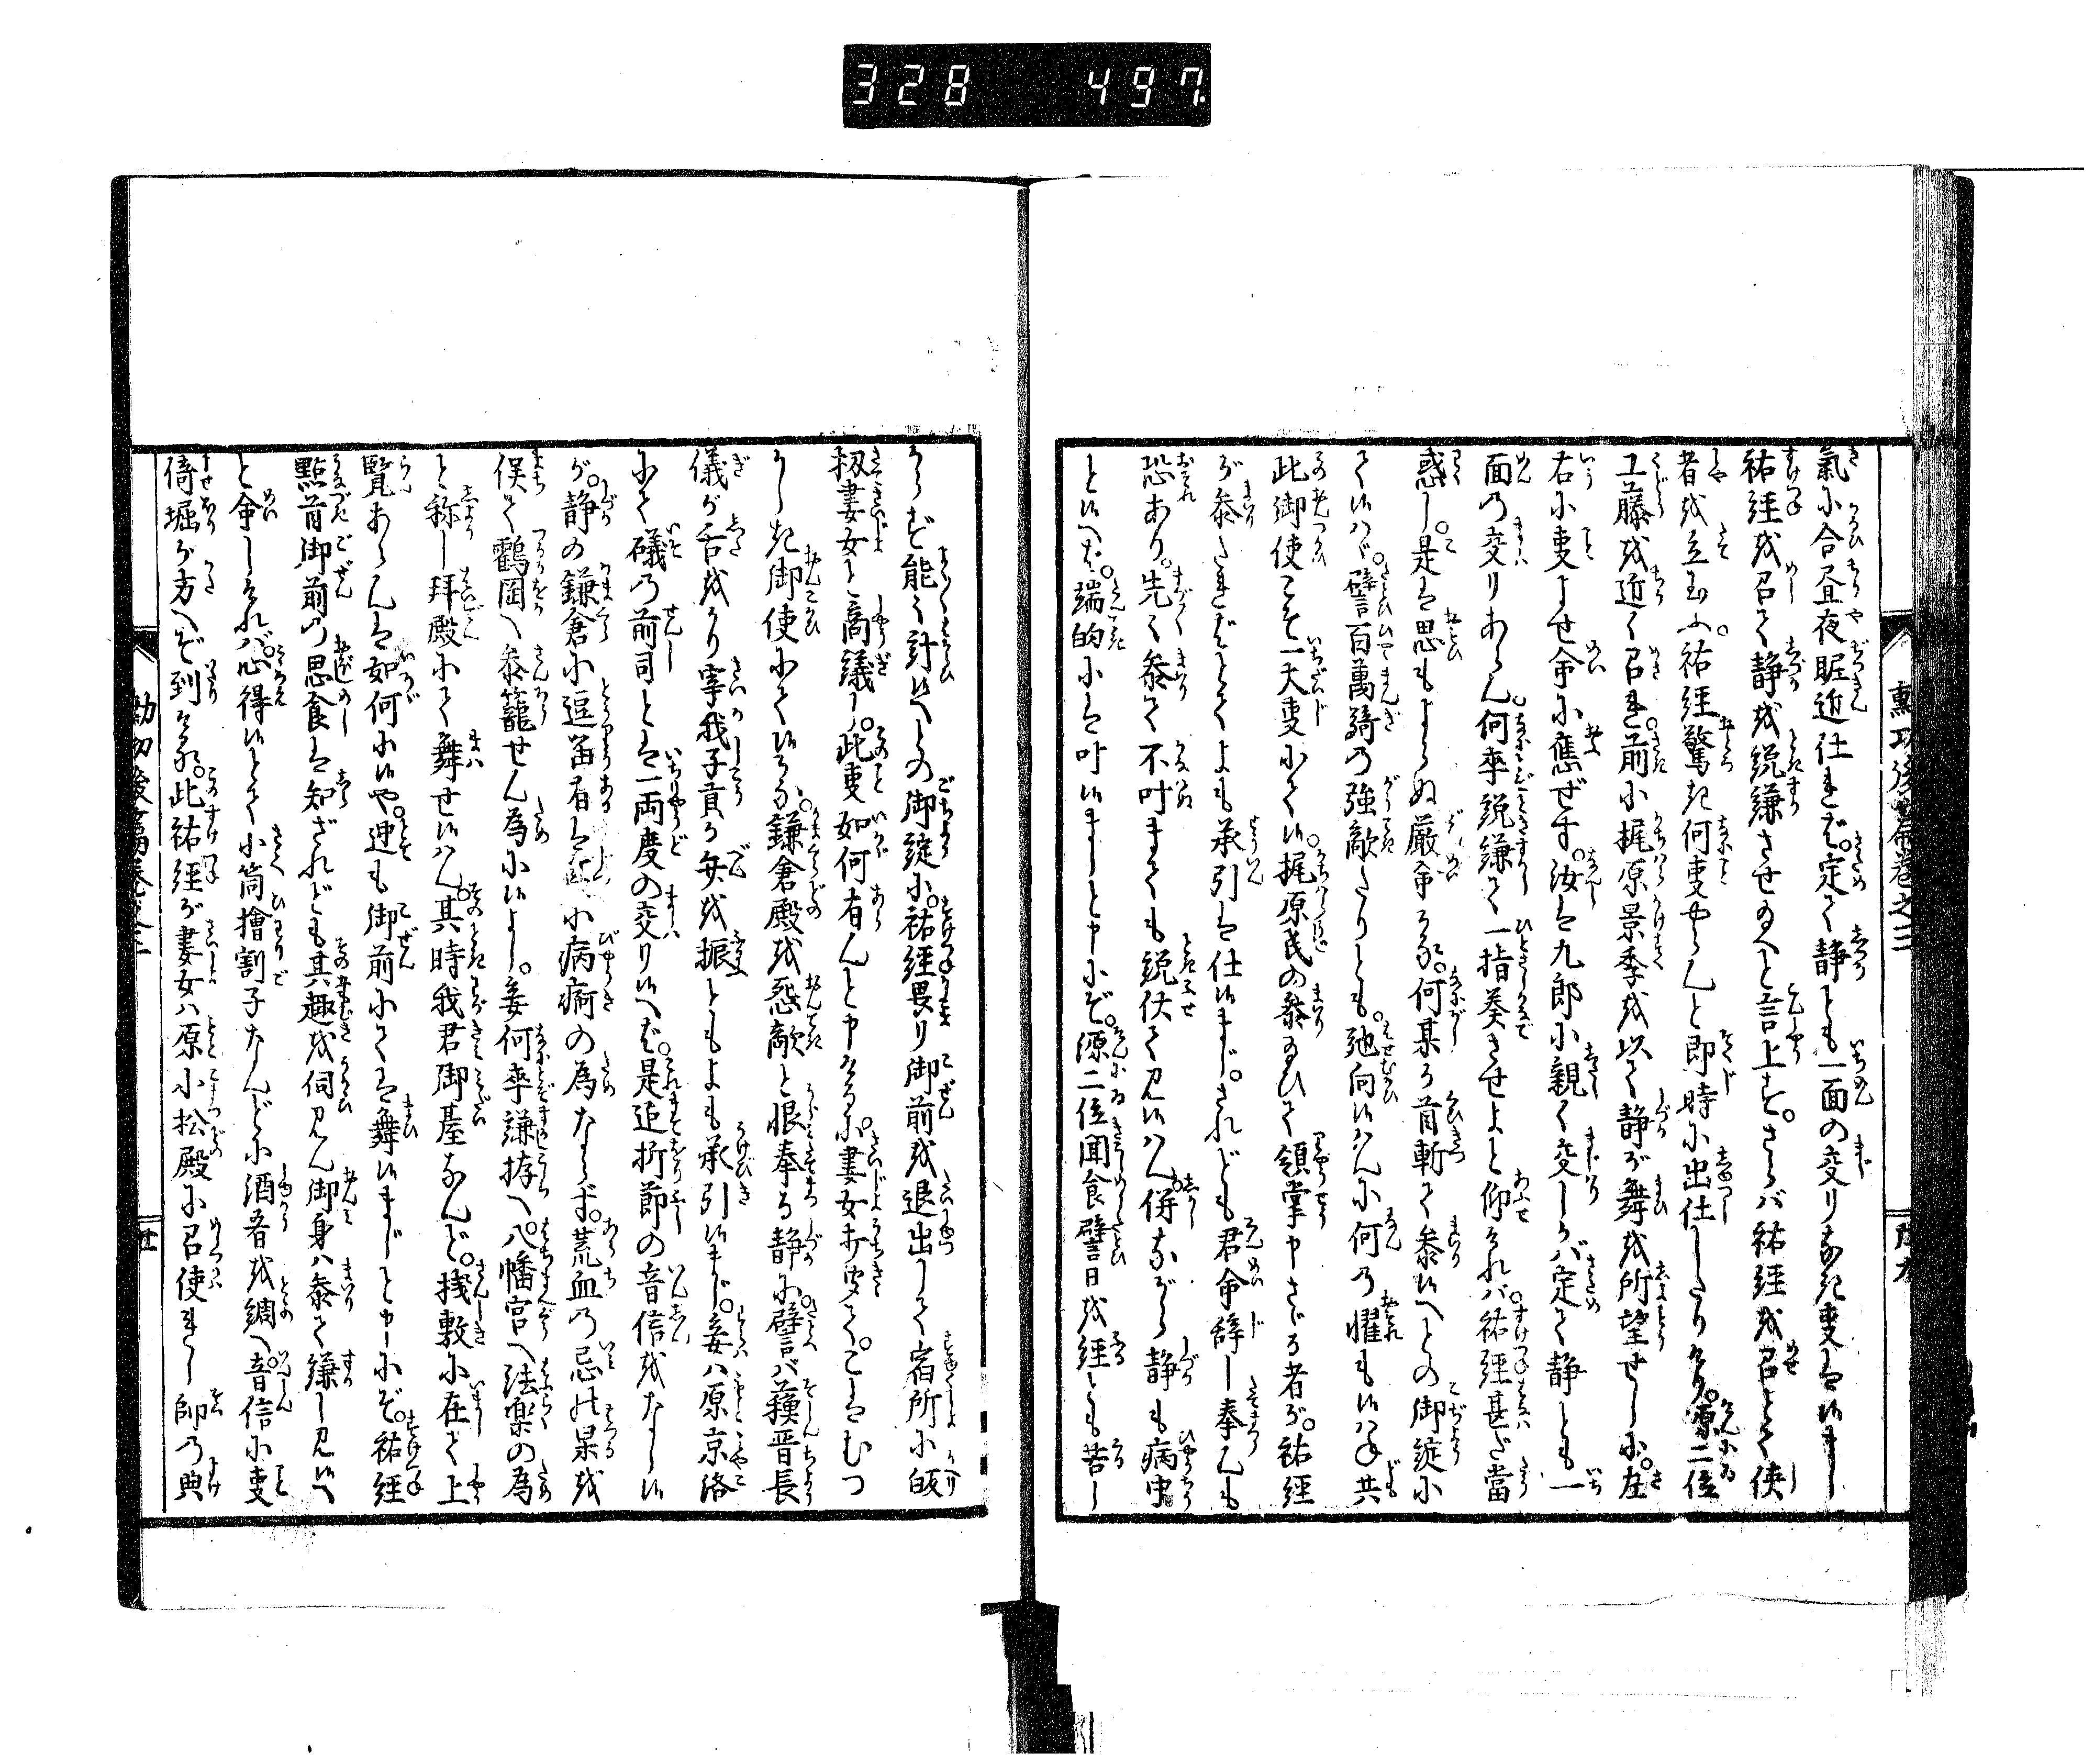 328 497
勲功後篇巻之三
氣に合昼夜昵近仕れば。定て静とも一面の交りなき叓は候まし
祐経を召て静を説縑させ給へと言上す。さらバ祐経を召とて使
者を立給ふ。祐経驚き何叓やらんと即時に出仕したりける。源二位
工藤を近く召れ。前に梶原景季を以て静が舞を所望せしに。左
右に叓よせ命に應ぜす。汝は九郎に親く交しかバ定て静とも一
面の交りあらん。何卒説縑て一指奏させよと仰けれバ。祐経甚だ當
惑し。是は思もよらぬ厳命かな。何某か首斬て参候へとの御錠に
て候ハヾ。譬百萬騎の強敵たりとも。馳向候ハんに何の懼も候ハね共
此御使こそ一大叓にて候。梶原氏の参給ひて領掌申さゞる者が。祐経
が参たればとてよも承引は仕候まじ。されども君命辞し奉んも
恐あり。先々参て不叶まても説伏て見候ハん。併ながら静も病中
と候へば。端的には叶候ましと申にぞ。源二位聞食譬日を経とも苦し
からず能々計候へとの御錠に。祐経畏り御前を退出して宿所に皈
扨妻女と商議し。此叓如何有んと申けるに。妻女打笑て。こはむつ
かしき御使にて候かな。鎌倉殿を怨敵と恨奉る静に。譬バ蘓晋長
儀が舌をかり宰我子貢が弁を振ともよも承引候まじ。妾ハ原京洛
にて礒の前司とは一両度の交り候へば。是迄折節の音信をなし候
が。静の鎌倉に逗畄有は
に病痾の為ならず。荒血の忌の果を
俟て鶴岡へ参籠せん為に候よし。妾何卒謙拵へ。八幡宮へ法楽の為
と称し拜殿にて舞せ候ハん。其時我君御臺なんど。棧敷に在て上
覧あらんは如何に候や。迚も御前にては舞候まじと申しにぞ。祐経
點首御前の思食は知ざれども其趣を伺見ん御身ハ参て縑し見候へ
と命しけれバ。心得候とて小筒檜割子なんどに酒肴を綢へ。音信に叓
倚堀が方へぞ到ける。此祐経が妻女ハ原小松殿に召使れし帥の典